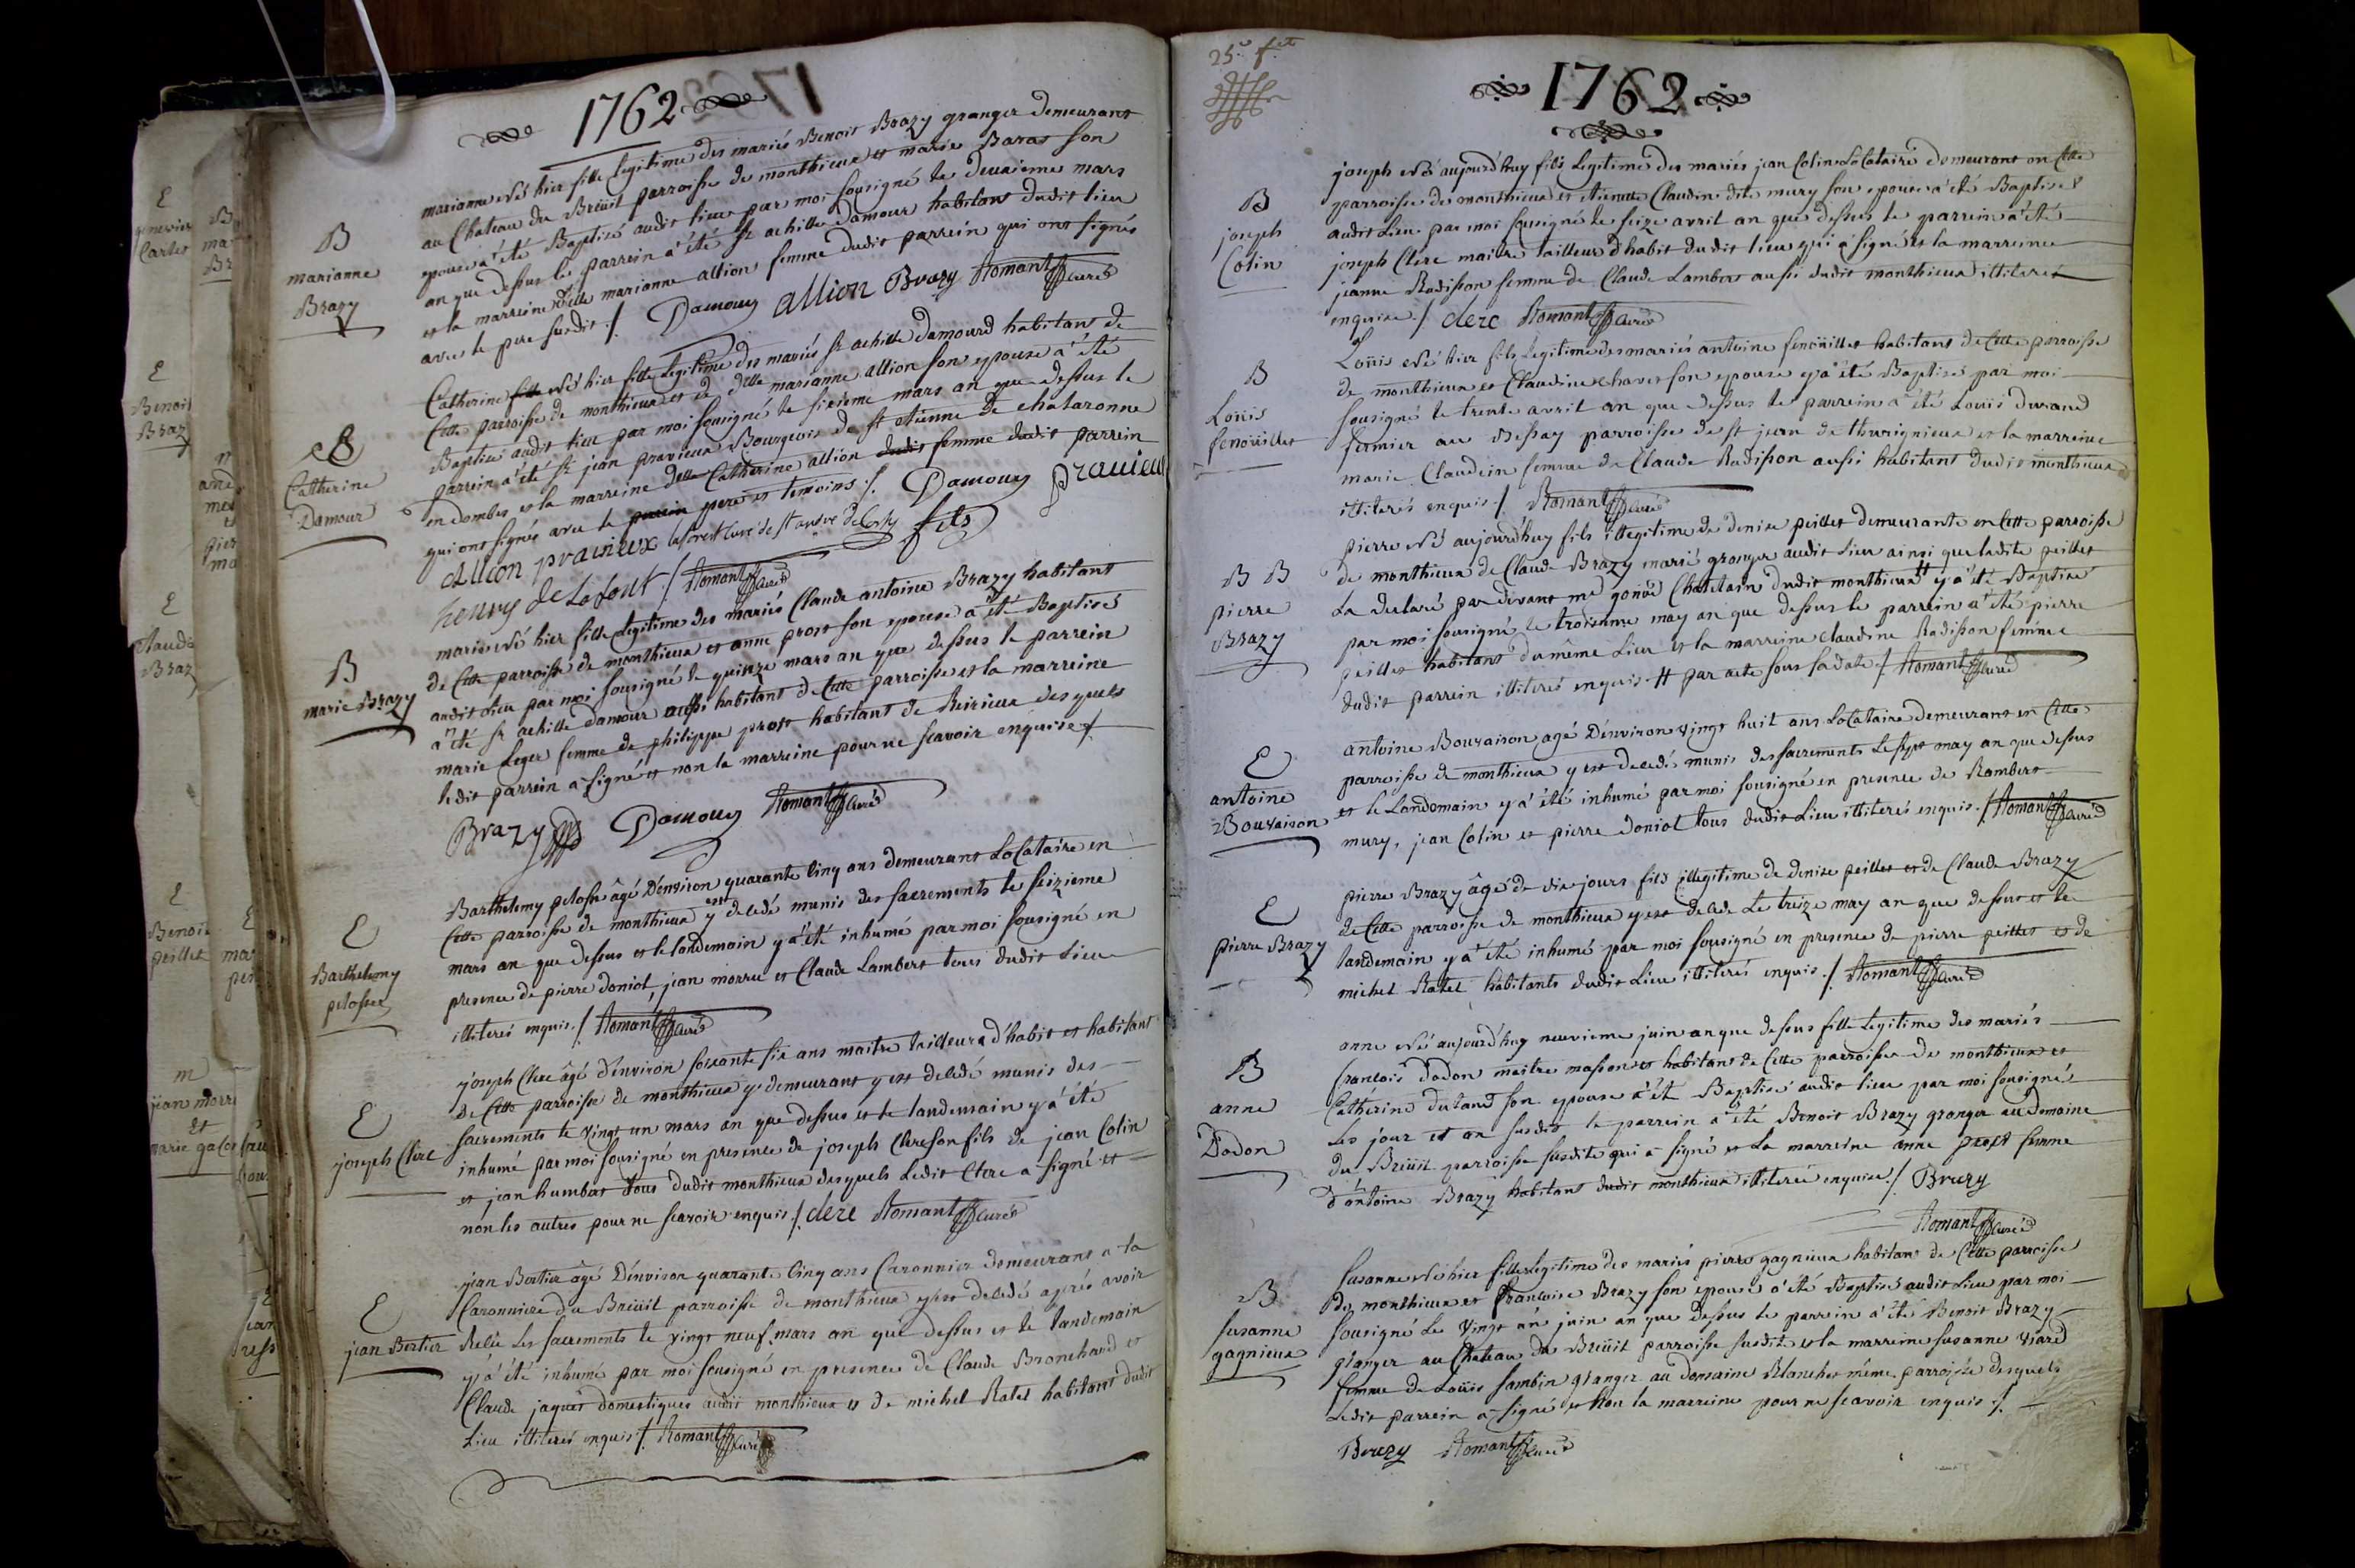 1762
B
marianne
Brazy
marianne née hier fille legitime des mariés Benoit Brazy granger demeurant
au Chateau du Breüil parroisse de monthieux et marie Baras son
epouse a été Baptisé audit lieu par moi sousigné le deuxieme mars
an que dessus le parrein a été sr achille Damour habitant dudit lieu
et la marreine delle marianne allion femme dudit parrein qui ont signés
avec le pere susdit ./. Damour allion Brazy Romant Curé
B
Catherine
Damour
Catherine fille née hier fille legitime des mariés sr achille Damourd habitant de
Cette parroisse de monthieux et de delle marianne allion son epouse a été
Baptisée audit lieu par moi sousigné le sixieme mars an que dessus le
parrein a été sr jean pravieux Bourgeois de st etienne de chalaronne
en dombes et la marreine delle Catherine allion dudit femme dudit parrein
qui ont signés avec le parrein pere et temoins ./. Damour pravieux
allion pravieux laforest curé de st andré de Corcy fils
henry de Lafont / Romant Curé
B
marie Brazy
marie née hier fille legitime des mariés Claude antoine Brazy habitant
de Cette parroisse de monthieux et anne prost son epouse a été Baptisé
audit Lieu par moi sousigné le quinze mars an que dessus le parrein
a été sr achille damour aussi habitant de Cette parroisse et la marreine
marie Leger femme de philippe prost habitant de Reirieux desquels
ledit parrein a signé et non la marreine pour ne scavoir enquise ./.
Brazy Damour Romant Curé
E
Barthelemy
pelosse
Barthelemy pelosse âgé D'environ quarante Cinq ans demeurant LoCataire en
Cette parroisse de monthieux y est decedé munis des sacrements le seizieme
mars an que dessus et le landemain y a été inhumé par moi sousigné en
presence de pierre doniol, jean morrel et Claude Lambert tous dudit Lieu
illiterés enquis ./. Romant Curé
E
joseph Clere
joseph Clere âgé d'environ soixante six ans maitre tailleur d'habit et habitant
de Cette parroisse de monthieux y demeurant y est decedé munis des
sacrements le vingt un mars an que dessus et le landemain y a été
inhumé par moi sousigné en presence de joseph Clere son fils de jean Colin
et jean humbert tous dudit monthieux desquels Ledit Clere a signé et
non les autres pour ne scavoir enquis ./. clere Romant Curé
E
jean Bertier
jean Bertier âgé D'environ quarante Cinq ans Caronnier demeurant a la
Caronniere du Breüil parroisse de monthieux y est decedé aprés avoir
Reçu les sacrements le vingt neuf mars an que dessus et le landemain
y a été inhumé par moi sousigné en presence de Claude Bronchard et
Claude jaquet domestiques audit monthieux et de michel Ratel habitant dudit
Lieu illiterés enquis ./. Romant Curé
25e ft
1762
B
joseph
Colin
joseph né aujourd'huy fils Legitime des mariés jean Colin LoCataire demeurant en Cette
parroisse de monthieux et etiennette Claudin dite mury son epouse a été Baptisé
audit Lieu par moi sousigné le seize avril an que dessus le parrein a été
joseph Clere maitre tailleur d'habit dudit lieu qui a signé et la marreine
jeanne Radisson femme de Claude Lambert aussi dudit monthieux illiteré
enquise ./. clere Romant Curé
B
Loüis
fenoüillet
Loüis né hier fils Legitime des mariés antoine fenoüillet habitant de Cette parroisse
de monthieux et Claudine chavet son epouse y a été Baptisé par moi
sousigné le trente avril an que dessus le parrein a été Loüis durand
fermier au Bessay parroisse de st jean de thurignieux et la marreine
marie Claudin femme de Claude Radisson aussi habitant dudit monthieux
illiterés enquis ./. Romant Curé
B B
pierre
Brazy
pierre né aujourd'huy fils illegitime de denise peillet demeurante en Cette parroisse
de monthieux de Claude Brazy marié granger audit Lieu ainsi que ladite peillet
La declaré par devant me Chatelain dudit monthieux # y a été Baptisé
par moi sousigné le troisieme may an que dessus le parrein a été pierre
peillet habitant du même Lieu et la marreine claudine Radisson femme
dudit parrein illiterés enquis # par acte sous sa date ./. Romant Curé
E
antoine
Bouvaison
antoine Bouvaison agé D'environ vingt huit ans LoCataire demeurant en Cette
parroisse de monthieux y est decedé munis des sacrements Le sept may an que dessus
et le Landemain y a été inhumé par moi sousigné en presence de Rombert
mury, jean Colin et pierre doniol tous dudit Lieu illiterés enquis ./. Romant Curé
E
pierre Brazy
pierre Brazy âgé de dix jours fils illegitime de denise peillet et de Claude Brazy
de Cette parroisse de monthieux y est decedé Le treize may an que dessus et le
landemain y a été inhumé par moi sousigné en presence de pierre peillet et de
michel Ratel habitants dudit Lieu illiterés enquis ./. Romant Curé
B
anne
Dodon
anne née aujourd'huy neuvieme juin an que dessus fille legitime des mariés
francois dodon maitre masson et habitant de Cette parroisse de monthieux et
Catherine dutard son epouse a été Baptisé audit lieu par moi sousigné
Les jour et an susdits le parrein a été Benoit Brazy granger au domaine
du Breüil parroisse susdite qui a signé et La marreine anne prost femme
d'antoine Brazy habitant dudit monthieux illiterée enquise ./. Brazy
Romant Curé
B
susanne
gagnieux
susanne née hier fille Legitime des mariés pierre gagnieux habitant de Cette parroisse
de monthieux et françoise Brazy son epouse a été Baptisé audit Lieu par moi
sousigné Le vingt un juin an que dessus le parrein a été Benoit Brazy
granger au Chateau du Breüil parroisse susdite et la marreine susanne viard
femme de Loüis sambin granger au domaine Blanchet même parroisse desquels
Ledit parrein a signé et Non la marreine pour ne scavoir enquis ./.
Brazy Romant Curé